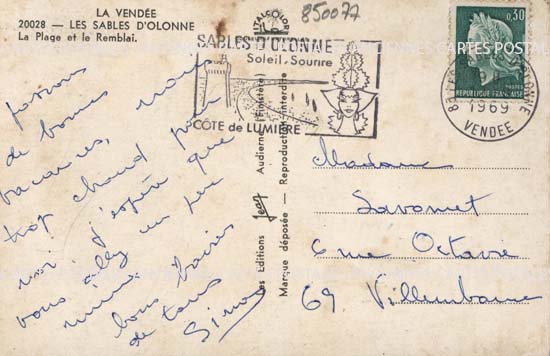 LA VENDÉE
20028 — LES SABLES D'OLONNE
La Plage et le Remblai.
850077
SABLES D'OLONNE
Soleil-Sourire
CÔTE de LUMIÈRE
0,30
REPUBLIQUE FRANÇAISE
1969
VENDEE
CARTES POSTAL
Les Editions Jean Audierne (Finistère)
Marque déposée - Reproduction interdite
passons
de bonnes
vacances,
trop chaud pour
moi, j'espère que
vous allez un peu
mieux
bons baisers
de tous
Simone
Madame
Savonet
6 rue Octavie
69 Villeurbanne